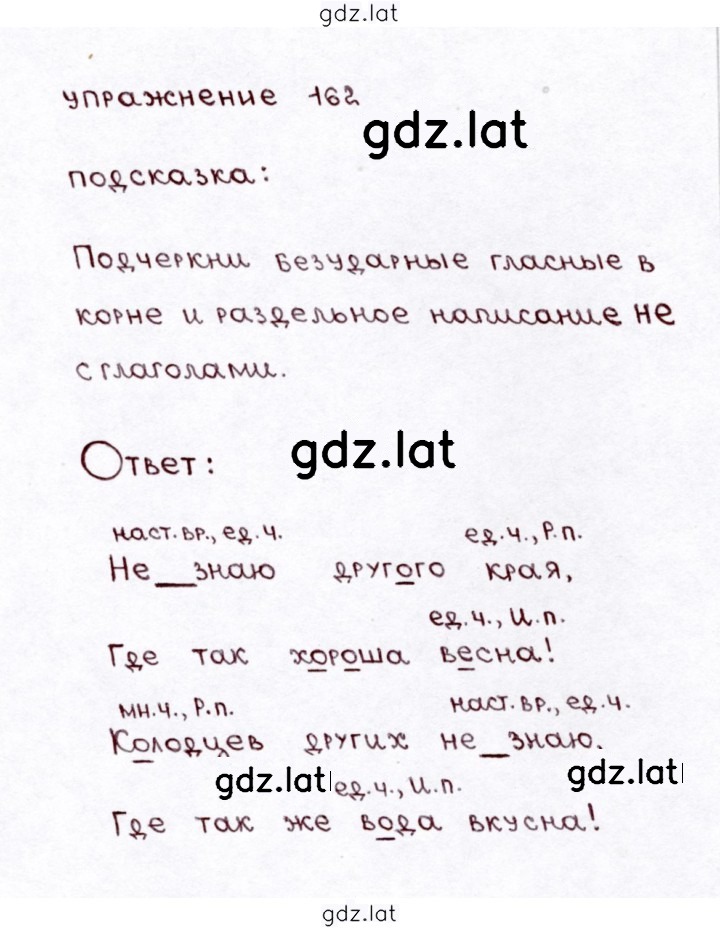 gdz.lat
упражнение 162
gdz.lat
подсказка:
Подчеркни безударные гласные в
корне и раздельное написание не
с глаголами.
Ответ:
gdz.lat
наст.вр., ед.ч. ед.ч., Р.п.
Не__знаю другого края,
ед.ч., И.п.
Где так хороша весна!
мн.ч., Р.п. наст.вр., ед.ч.
Колодцев других не__знаю.
gdz.lat ед.ч., И.п. gdz.lat
Где так же вода вкусна!
gdz.lat